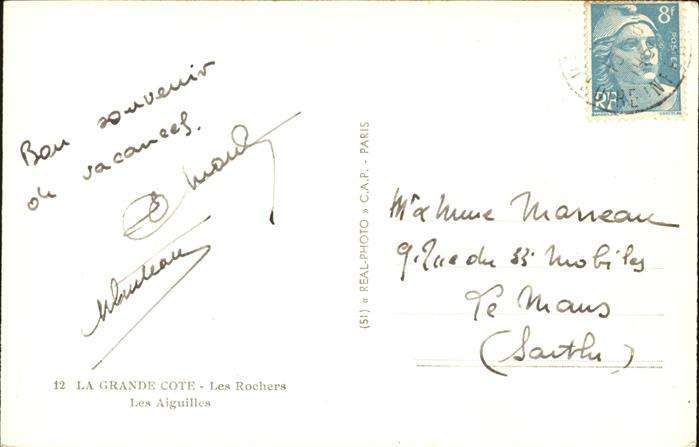 Bon souvenir
de vacances.
12 LA GRANDE COTE - Les Rochers
Les Aiguilles
(51) « REAL-PHOTO » C.A.P. - PARIS
8f
POSTES
RF
Mr & Mme
9 Rue du 33 Mobiles
Le Mans
(Sarthe)